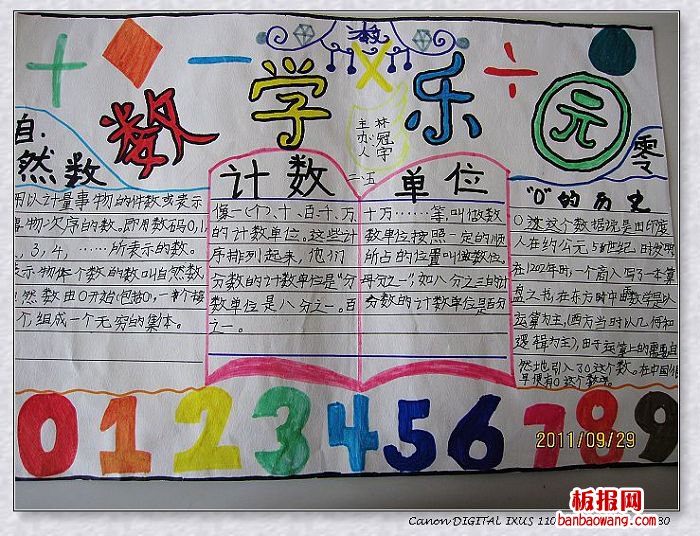 数学乐元
主办人
林冠宇
二·五
自·
然数
用以计量事物的件数或表示
事物次序的数。即用数码0,1,
,3,4,……所表示的数。
示物体个数的数叫自然数,
然数由0开始(包括0),一个接
个,组成一个无穷的集体。
计数单位
像一(个)、十、百、千、万、
的计数单位。这些计
序排列起来,他们
分数的计数单位是“分
数单位是八分之一。百
一。
十万……等,叫做数
数单位按照一定的顺
所占的位置叫做数位。
母分之一”,如八分之三的计
分数的计数单位是百分
零
“0”的历史
0这这个数据说是由印度
人在约公元5世纪时发明
在1202年时,一个商人写了一本算
盘之书,在东方时中由数学是以
运算为主,(西方当时以几何和
逻辑为主),由于运算上的需要自
然地引入了0这个数。在中国很
早便有0这个数
0123456789
2011/09/29
板报网
banbaowang.com
Canon DIGITAL IXUS 110
30